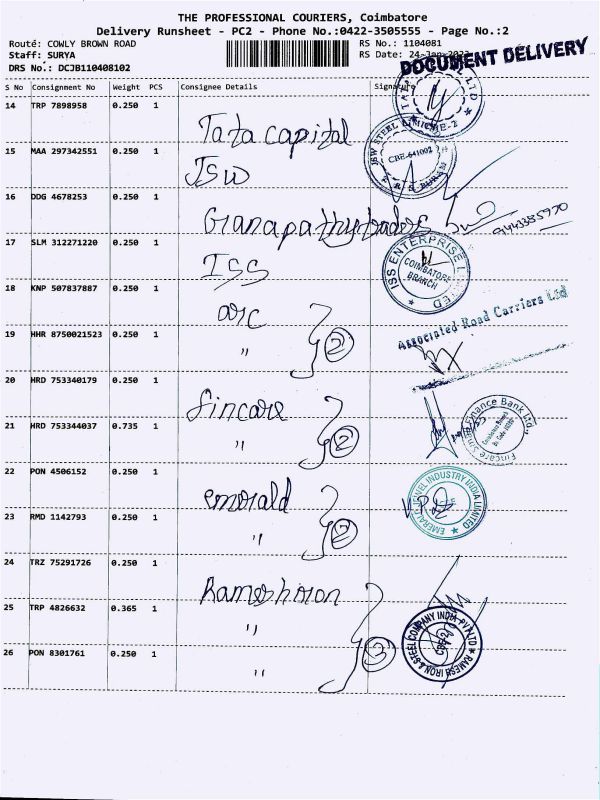 THE PROFESSIONAL COURIERS, Coimbatore
Delivery Runsheet - PC2 - Phone No.:0422-3505555 - Page No.:2
Route: COWLY BROWN ROAD
RS No.: 1104081
Staff: SURYA
RS Date: 24-Jan-2023
DRS No.: DCJB110408102
DOCUMENT DELIVERY
S No Consignment No Weight PCS Consignee Details Signature
14 TRP 7898958 0.250 1 Tata capital
15 MAA 297342551 0.250 1 JSW
JSW STEEL LIMITED
CBE-641002
16 DDG 4678253 0.250 1 Ganapathy traders
17 SLM 312271220 0.250 1 ISS
ISS ENTERPRISE LIMITED
COIMBATORE
BRANCH
18 KNP 507837887 0.250 1 arc
Associated Road Carriers Ltd
19 HHR 8750021523 0.250 1 " 2
20 HRD 753340179 0.250 1 fincare
Fincare Small Finance Bank Ltd.
21 HRD 753344037 0.735 1 " 2
22 PON 4506152 0.250 1 emerald
EMERALD JEWEL INDUSTRY INDIA LIMITED
23 RMD 1142793 0.250 1 " 2
24 TRZ 75291726 0.250 1 Rameshiron
25 TRP 4826632 0.365 1 "
RAMESH IRON & STEEL COMPANY INDIA PVT LTD
26 PON 8301761 0.250 1 " 3